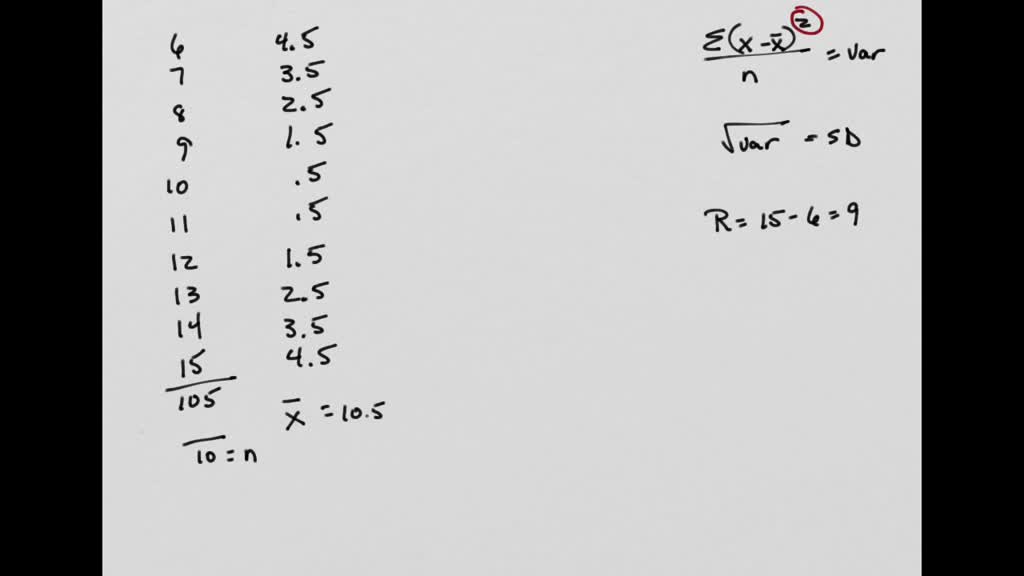 6 4.5
7 3.5
8 2.5
9 1.5
10 .5
11 .5
12 1.5
13 2.5
14 3.5
15 4.5
105
x̄ = 10.5
10 = n
Σ(x-x̄)²
n
= var
√var = SD
R = 15 - 6 = 9